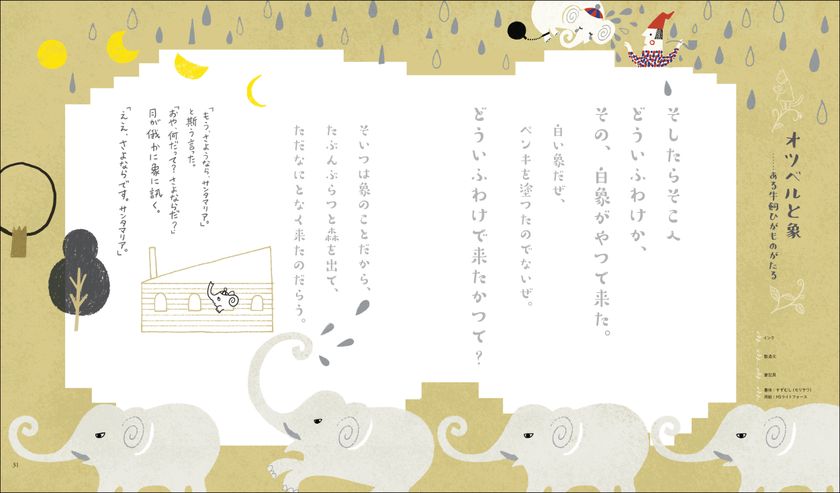 オツベルと象
……ある牛飼ひがものがたる
そしたらそこへ
どういふわけか、
その、白象がやつて来た。
白い象だぜ、
ペンキを塗つたのでないぜ。
どういふわけで来たかつて？
そいつは象のことだから、
たぶんぶらつと森を出て、
ただなにとなく来たのだらう。
「もう、さようなら、サンタマリア。」
と斯う言った。
「おや、何だって？さよならだ？」
月が俄かに象に訊く。
「ええ、さよならです。サンタマリア。」
インク
製造元
筆記具
書体：すずむし(モリサワ)
用紙：HSライトフォース
31